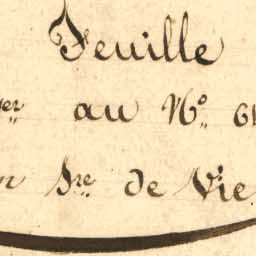 Feuille
er au No 61
n Sre de Vie